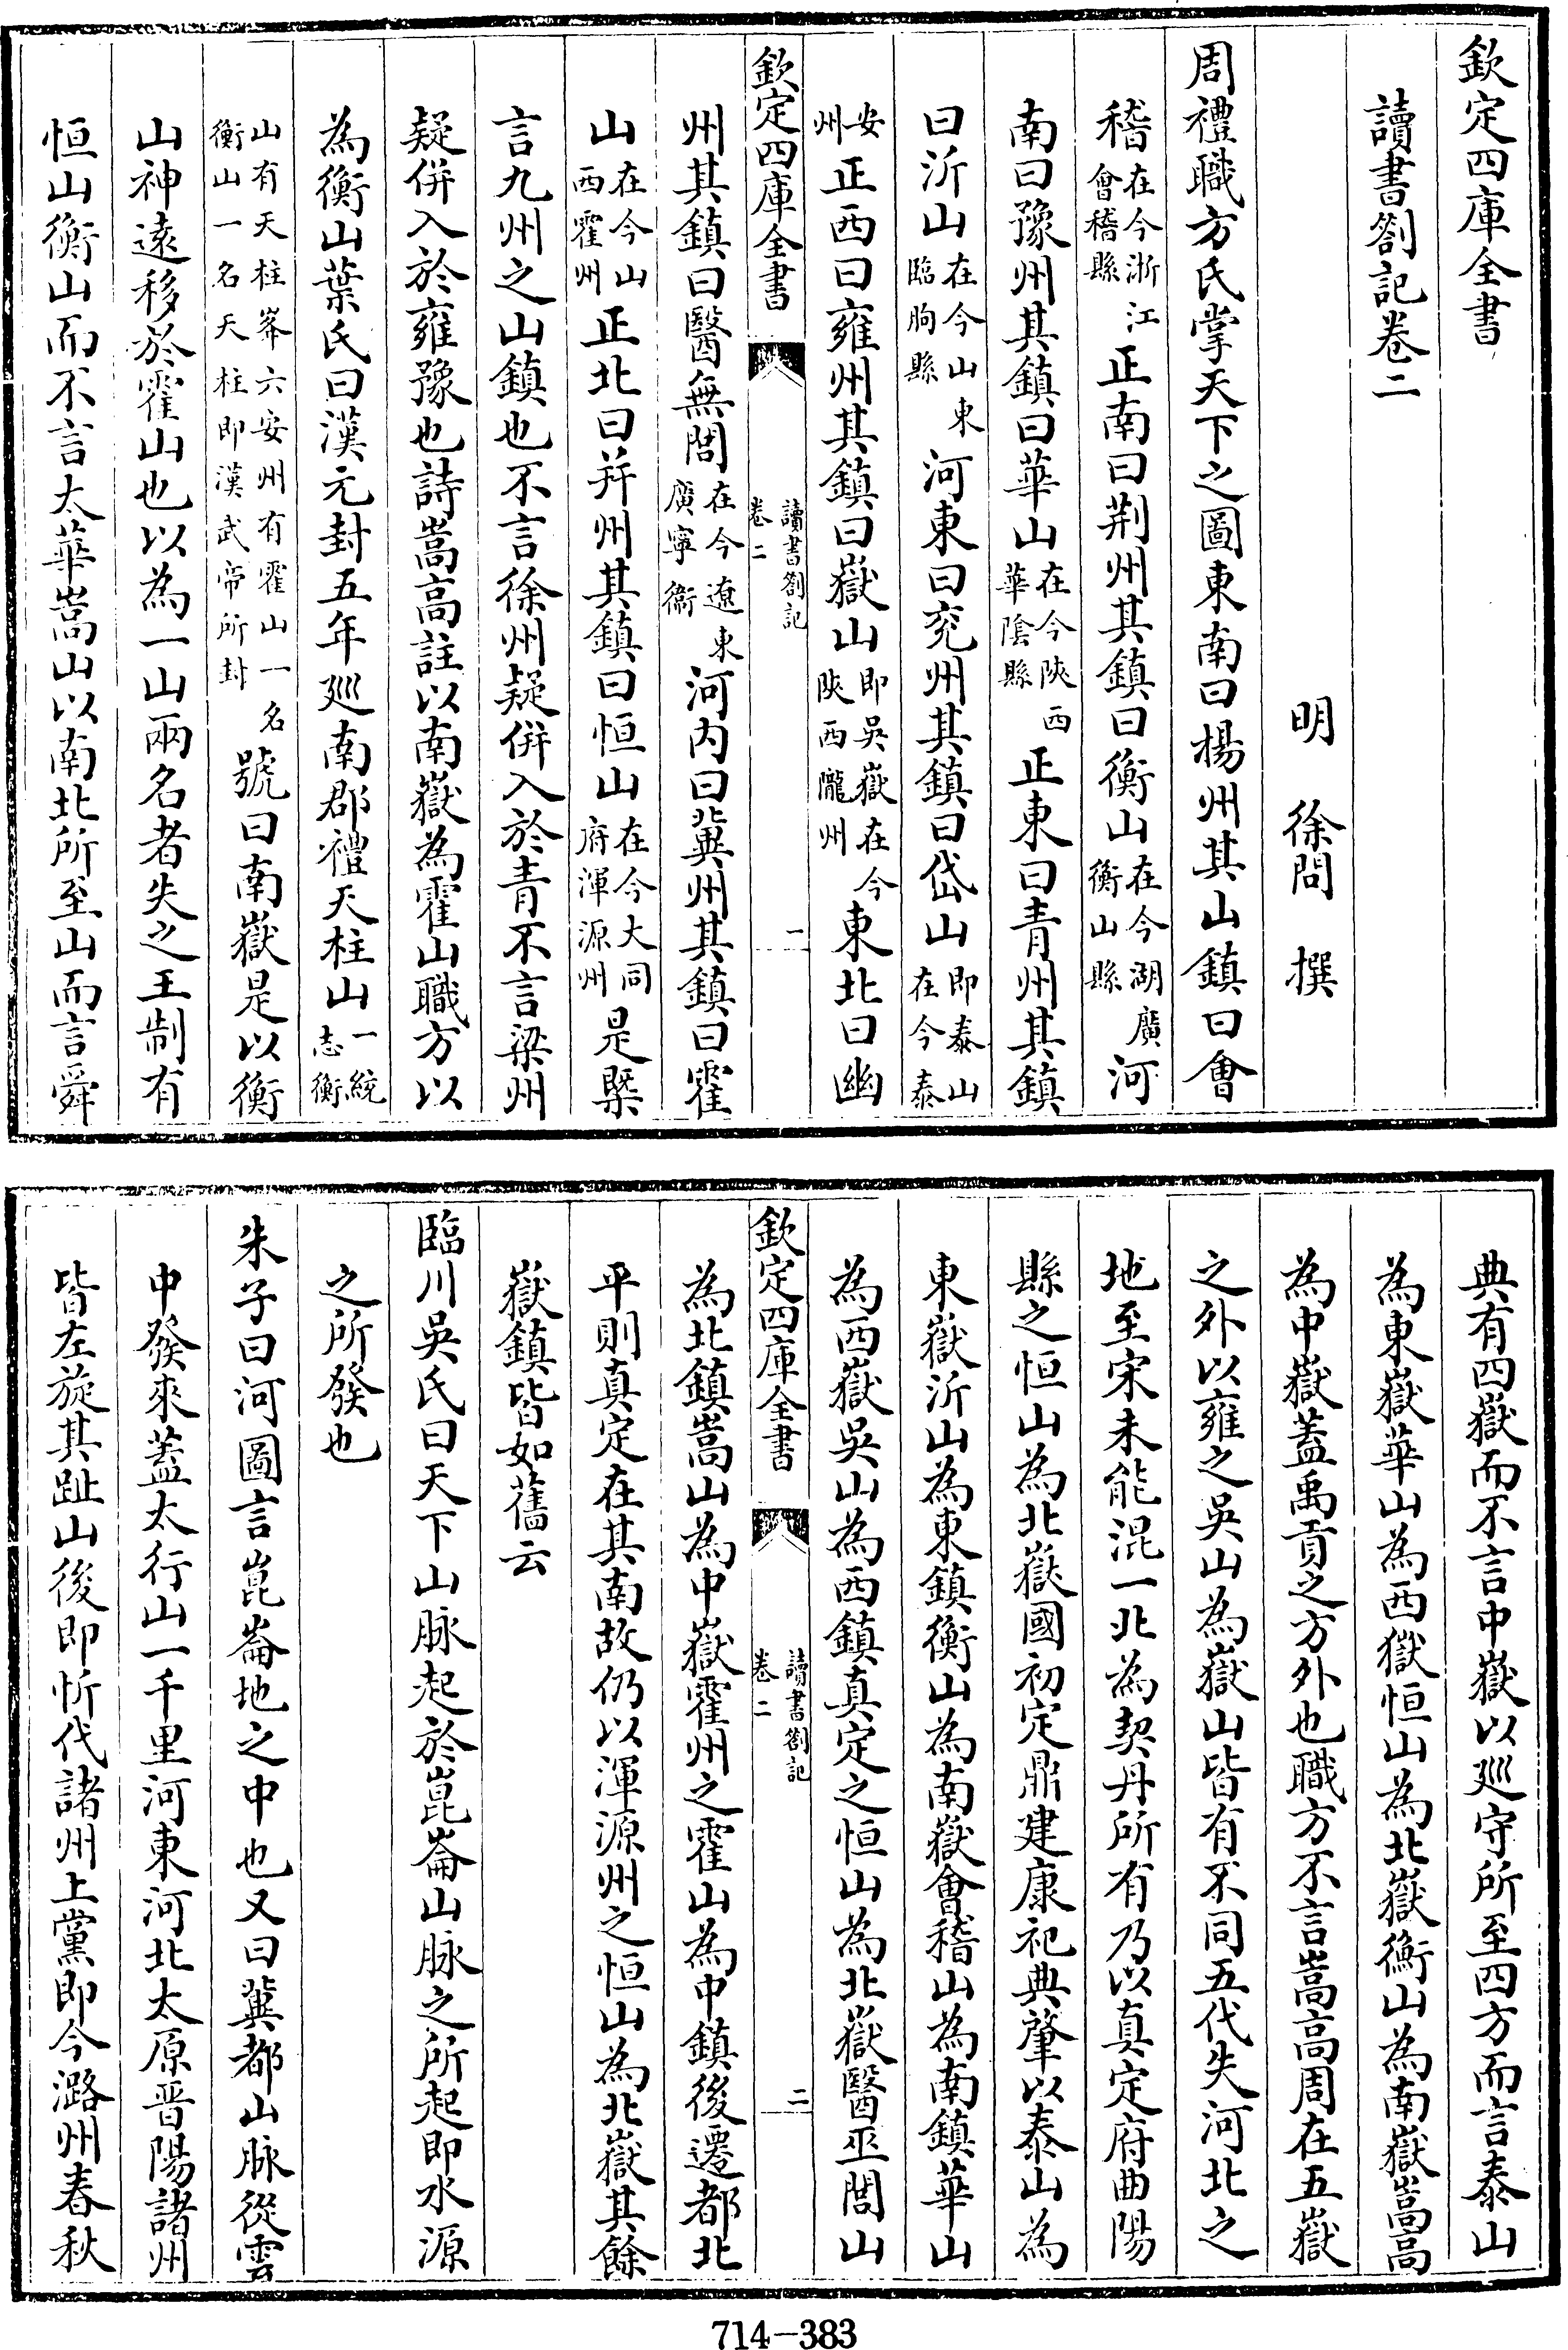 欽定四庫全書
讀書劄記卷二
明 徐問 撰
周禮職方氏掌天下之圖東南曰揚州其山鎮曰會
稽在今浙江會稽縣正南曰荆州其鎮曰衡山在今湖廣衡山縣河
南曰豫州其鎮曰華山在今陜西華陰縣正東曰青州其鎮
曰沂山在今山東臨朐縣河東曰兖州其鎮曰岱山即泰山在今泰
安州正西曰雍州其鎮曰嶽山即吳嶽在今陜西隴州東北曰幽
欽定四庫全書 讀書劄記卷二 一
州其鎮曰醫無閭在今遼東廣寧衞河内曰冀州其鎮曰霍
山在今山西霍州正北曰并州其鎮曰恒山在今大同府渾源州是槩
言九州之山鎮也不言徐州疑併入於青不言梁州
疑併入於雍豫也詩嵩高註以南嶽為霍山職方以
為衡山葉氏曰漢元封五年巡南郡禮天柱山一統志衡
山有天柱峯六安州有霍山一名衡山一名天柱即漢武帝所封號曰南嶽是以衡
山神遠移於霍山也以為一山兩名者失之王制有
恒山衡山而不言太華嵩山以南北所至山而言舜
典有四嶽而不言中嶽以巡守所至四方而言泰山
為東嶽華山為西嶽恒山為北嶽衡山為南嶽嵩高
為中嶽蓋禹貢之方外也職方不言嵩高周在五嶽
之外以雍之吳山為嶽山皆有不同五代失河北之
地至宋未能混一北為契丹所有乃以真定府曲陽
縣之恒山為北嶽國初定鼎建康祀典肇以泰山為
東嶽沂山為東鎮衡山為南嶽會稽山為南鎮華山
為西嶽吳山為西鎮真定之恒山為北嶽醫巫閭山
欽定四庫全書 讀書劄記卷二 二
為北鎮嵩山為中嶽霍州之霍山為中鎮後遷都北
平則真定在其南故仍以渾源州之恒山為北嶽其餘
嶽鎮皆如舊云
臨川吳氏曰天下山脉起於崑崙山脉之所起即水源
之所發也
朱子曰河圖言崑崙地之中也又曰冀都山脈從雲
中發來蓋太行山一千里河東河北太原晉陽諸州
皆左旋其趾山後即忻代諸州上黨即今潞州春秋
714-383